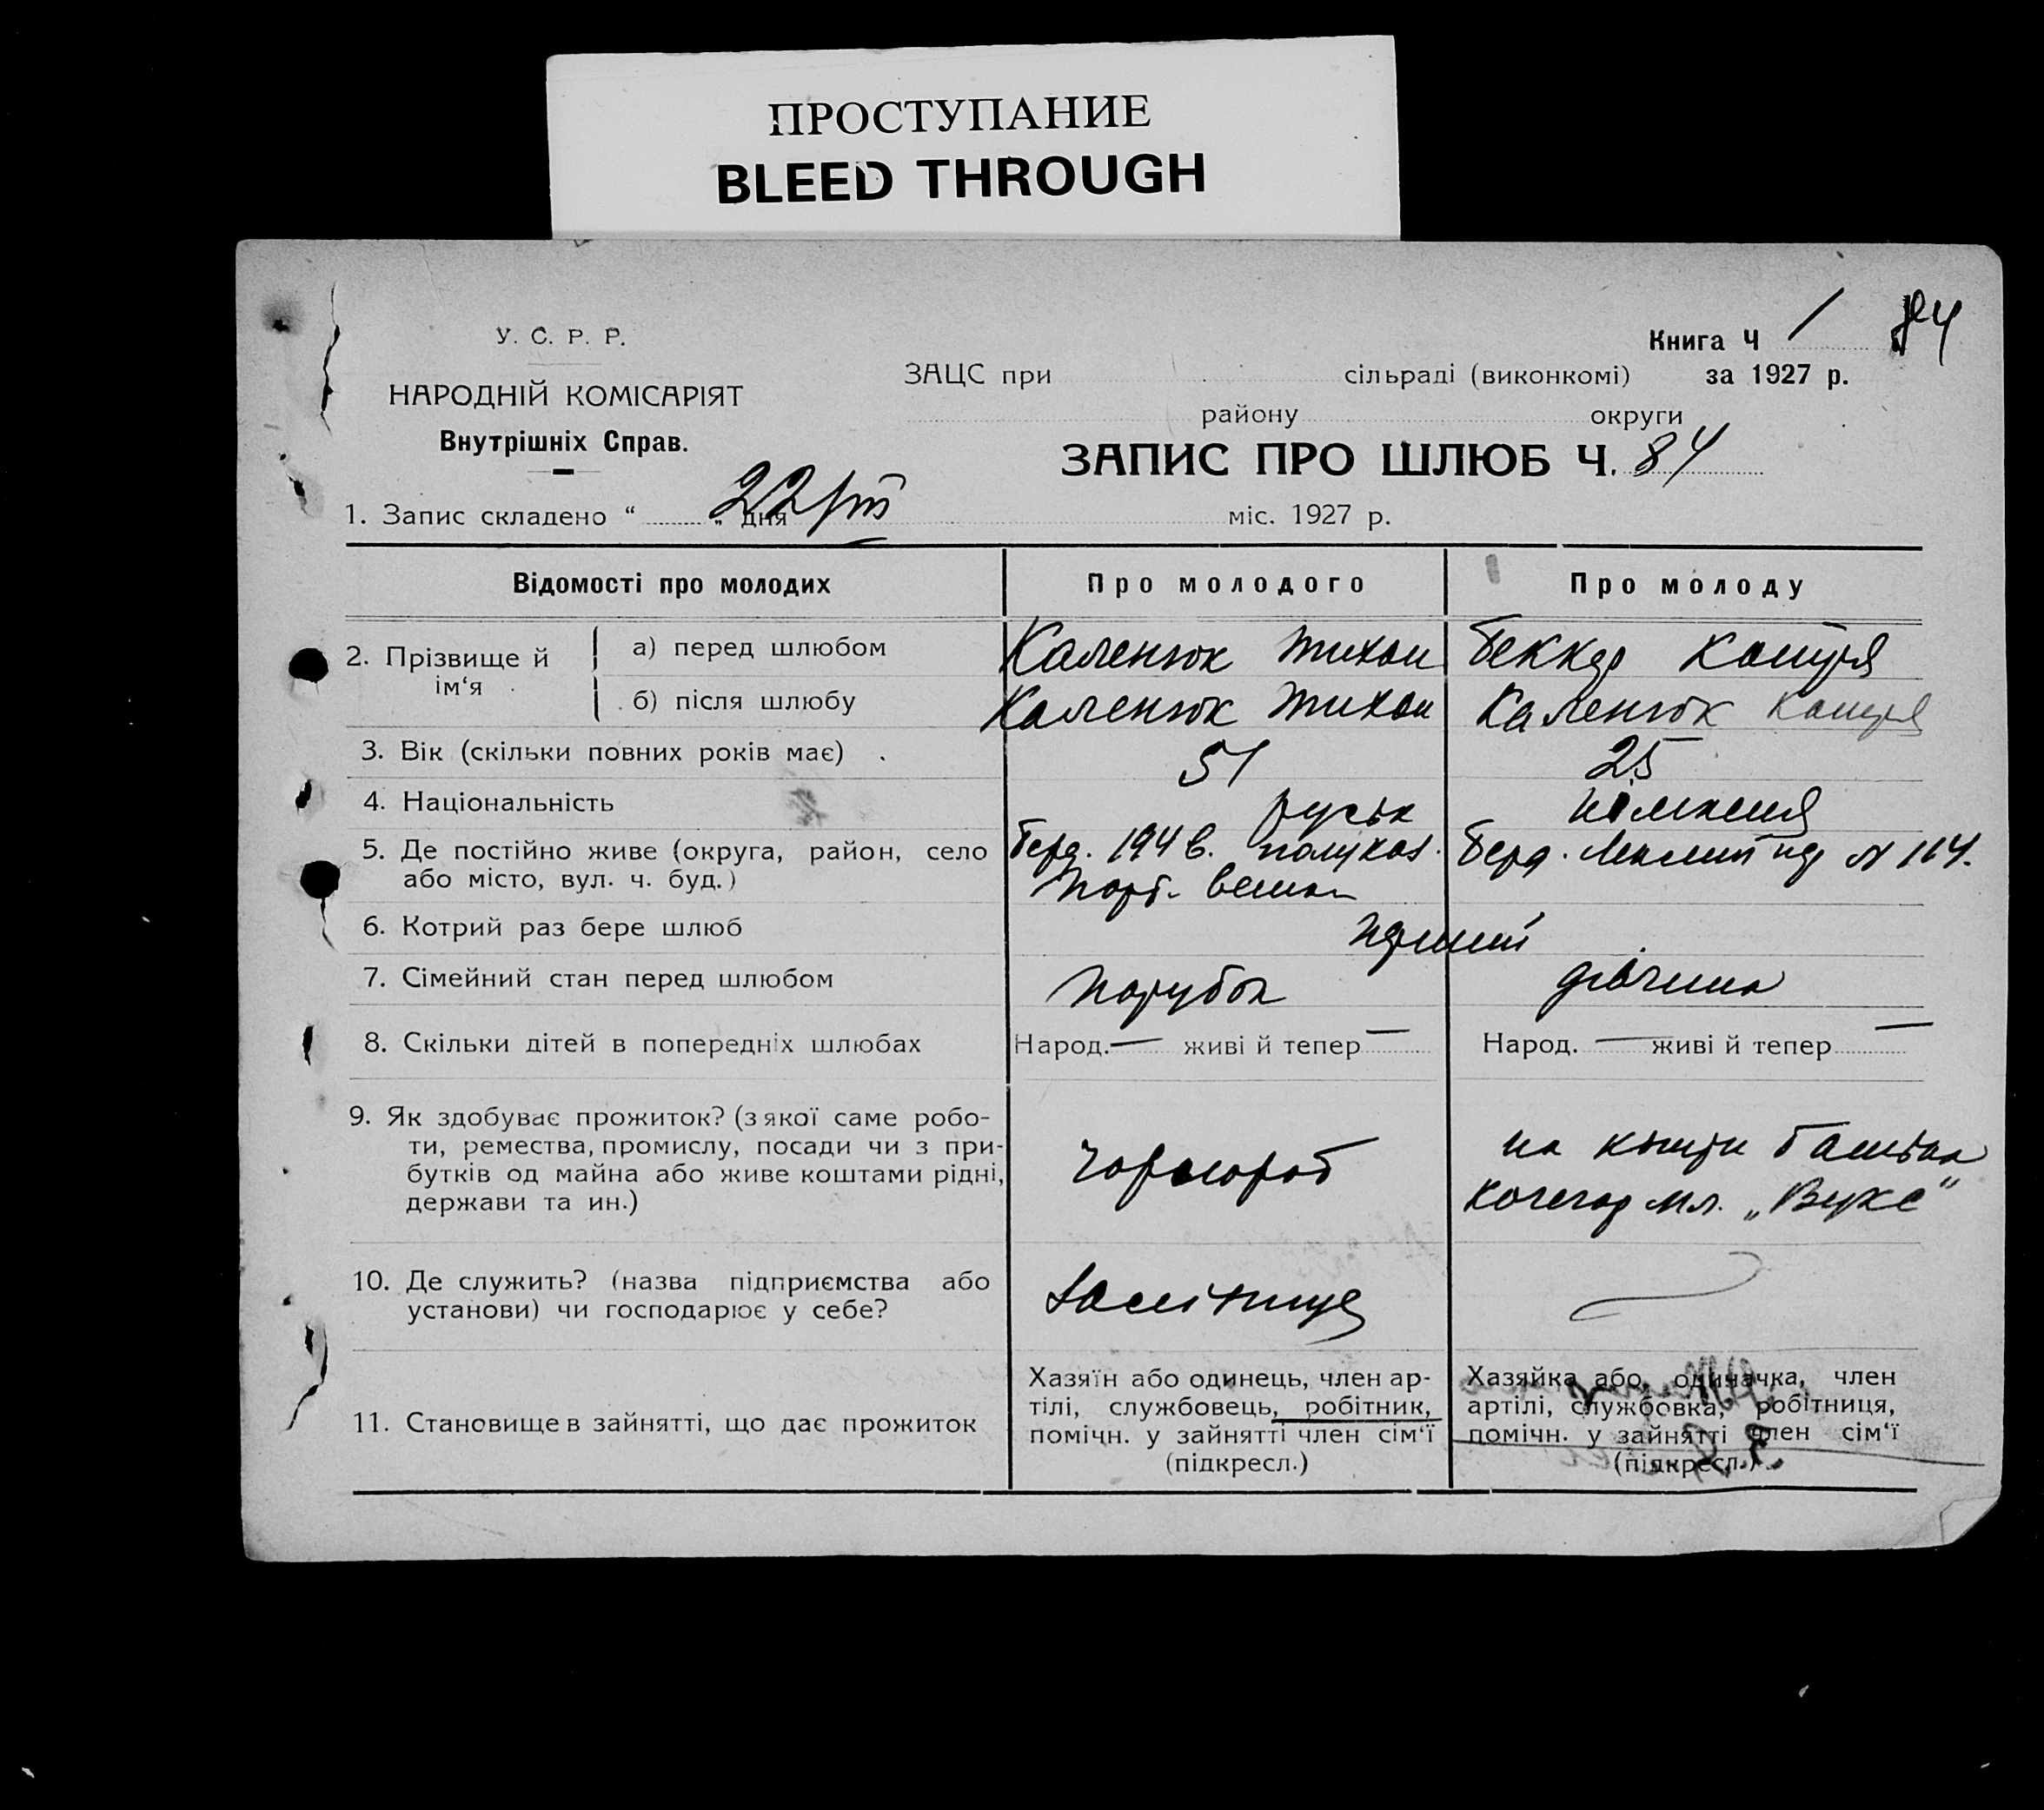 ПРОСТУПАНИЕ
BLEED THROUGH
Книга Ч 1 84
У. С. Р. Р.
ЗАЦС при сільраді (виконкомі) за 1927 р.
НАРОДНІЙ КОМІСАРІЯТ
району округи
Внутрішніх Справ.
ЗАПИС ПРО ШЛЮБ Ч. 84
1. Запис складено “ „ дня 22/III міс. 1927 р.
Відомості про молодих Про молодого Про молоду
2. Прізвище й ім‘я
а) перед шлюбом Каленюк Тихон Беккер Катря
б) після шлюбу Каленюк Тихон Каленюк Катря
3. Вік (скільки повних років має) 51 25
4. Національність руськ німкеня
5. Де постійно живе (округа, район, село Берд. 194 в. Берд. № 164.
або місто, вул. ч. буд.)
6. Котрий раз бере шлюб перший
7. Сімейний стан перед шлюбом Парубок дівчина
8. Скільки дітей в попередніх шлюбах Народ. — живі й тепер — Народ. — живі й тепер —
9. Як здобуває прожиток? (з якої саме робо-
ти, ремества, промислу, посади чи з при-
бутків од майна або живе коштами рідні,
держави та ин.)
Чорнороб
на кошти батька
кочегар мл. „
10. Де служить? (назва підприємства або
установи) чи господарює у себе?
11. Становище в зайнятті, що дає прожиток
Хазяїн або одинець, член ар-
тілі, службовець, робітник,
помічн. у зайнятті член сім‘ї
(підкресл.)
Хазяйка або одиначка, член
артілі, службовка, робітниця,
помічн. у зайнятті член сім‘ї
(підкресл.)